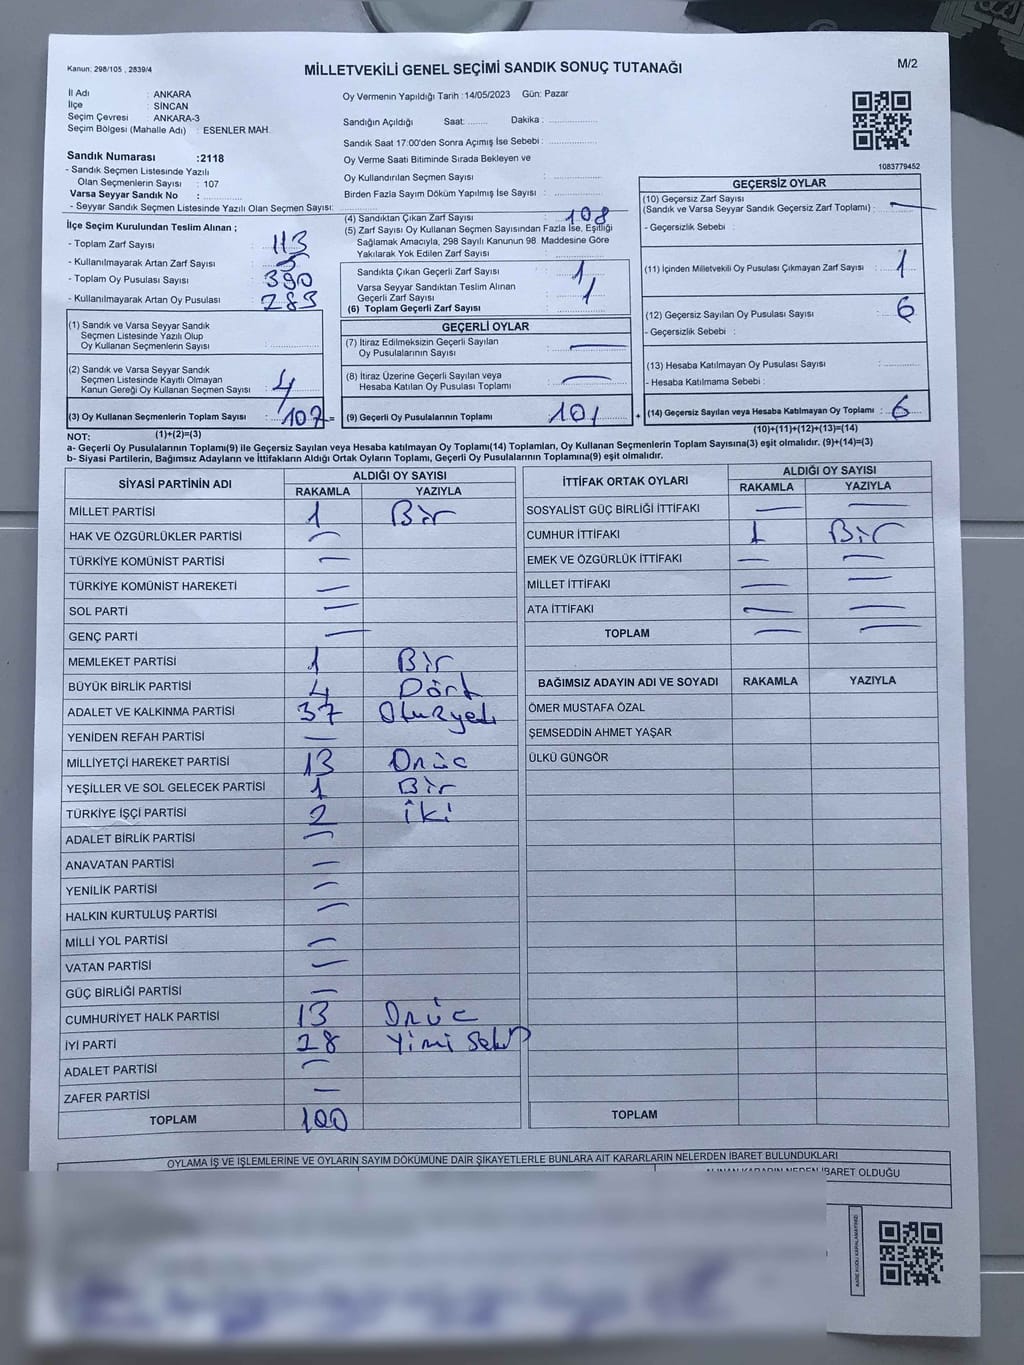 Kanun: 298/105 , 2839/4
MİLLETVEKİLİ GENEL SEÇİMİ SANDIK SONUÇ TUTANAĞI
M/2
İl Adı : ANKARA
İlçe : SİNCAN
Seçim Çevresi : ANKARA-3
Seçim Bölgesi (Mahalle Adı) : ESENLER MAH.
Sandık Numarası :2118
- Sandık Seçmen Listesinde Yazılı
Olan Seçmenlerin Sayısı : 107
Varsa Seyyar Sandık No :
- Seyyar Sandık Seçmen Listesinde Yazılı Olan Seçmen Sayısı:
Oy Vermenin Yapıldığı Tarih :14/05/2023 Gün: Pazar
Sandığın Açıldığı Saat: Dakika :
Sandık Saat 17:00'den Sonra Açımış İse Sebebi :
Oy Verme Saati Bitiminde Sırada Bekleyen ve
Oy Kullandırılan Seçmen Sayısı :
Birden Fazla Sayım Döküm Yapılmış İse Sayısı :
1083779452
İlçe Seçim Kurulundan Teslim Alınan ;
- Toplam Zarf Sayısı : 113
- Kullanılmayarak Artan Zarf Sayısı : 5
- Toplam Oy Pusulası Sayısı : 390
- Kullanılmayarak Artan Oy Pusulası : 283
(1) Sandık ve Varsa Seyyar Sandık
Seçmen Listesinde Yazılı Olup
Oy Kullanan Seçmenlerin Sayısı :
(2) Sandık ve Varsa Seyyar Sandık
Seçmen Listesinde Kayıtlı Olmayan
Kanun Gereği Oy Kullanan Seçmen Sayısı : 4
(3) Oy Kullanan Seçmenlerin Toplam Sayısı : 107 =
(1)+(2)=(3)
(4) Sandıktan Çıkan Zarf Sayısı : 108
(5) Zarf Sayısı Oy Kullanan Seçmen Sayısından Fazla İse, Eşitliği
Sağlamak Amacıyla, 298 Sayılı Kanunun 98 Maddesine Göre
Yakılarak Yok Edilen Zarf Sayısı :
Sandıkta Çıkan Geçerli Zarf Sayısı : 1
Varsa Seyyar Sandıktan Teslim Alınan
Geçerli Zarf Sayısı : 1
(6) Toplam Geçerli Zarf Sayısı :
GEÇERLİ OYLAR
(7) İtiraz Edilmeksizin Geçerli Sayılan
Oy Pusulalarının Sayısı : —
(8) İtiraz Üzerine Geçerli Sayılan veya
Hesaba Katılan Oy Pusulası Toplamı : —
(9) Geçerli Oy Pusulalarının Toplamı : 101 +
GEÇERSİZ OYLAR
(10) Geçersiz Zarf Sayısı
(Sandık ve Varsa Seyyar Sandık Geçersiz Zarf Toplamı) : —
- Geçersizlik Sebebi :
(11) İçinden Milletvekili Oy Pusulası Çıkmayan Zarf Sayısı : 1
(12) Geçersiz Sayılan Oy Pusulası Sayısı : 6
- Geçersizlik Sebebi :
(13) Hesaba Katılmayan Oy Pusulası Sayısı :
- Hesaba Katılmama Sebebi :
(14) Geçersiz Sayılan veya Hesaba Katılmayan Oy Toplamı : 6
(10)+(11)+(12)+(13)=(14)
NOT:
a- Geçerli Oy Pusulalarının Toplamı(9) ile Geçersiz Sayılan veya Hesaba katılmayan Oy Toplamı(14) Toplamları, Oy Kullanan Seçmenlerin Toplam Sayısına(3) eşit olmalıdır. (9)+(14)=(3)
b- Siyasi Partilerin, Bağımsız Adayların ve İttifakların Aldığı Ortak Oyların Toplamı, Geçerli Oy Pusulalarının Toplamına(9) eşit olmalıdır.
SİYASİ PARTİNİN ADI
ALDIĞI OY SAYISI
RAKAMLA YAZIYLA
MİLLET PARTİSİ 1 Bir
HAK VE ÖZGÜRLÜKLER PARTİSİ —
TÜRKİYE KOMÜNİST PARTİSİ —
TÜRKİYE KOMÜNİST HAREKETİ —
SOL PARTİ —
GENÇ PARTİ —
MEMLEKET PARTİSİ 1 Bir
BÜYÜK BİRLİK PARTİSİ 4 Dört
ADALET VE KALKINMA PARTİSİ 37 Otuzyedi
YENİDEN REFAH PARTİSİ —
MİLLİYETÇİ HAREKET PARTİSİ 13 Onüc
YEŞİLLER VE SOL GELECEK PARTİSİ 1 Bir
TÜRKİYE İŞÇİ PARTİSİ 2 iki
ADALET BİRLİK PARTİSİ —
ANAVATAN PARTİSİ —
YENİLİK PARTİSİ —
HALKIN KURTULUŞ PARTİSİ —
MİLLİ YOL PARTİSİ —
VATAN PARTİSİ —
GÜÇ BİRLİĞİ PARTİSİ —
CUMHURİYET HALK PARTİSİ 13 Onüc
İYİ PARTİ 28 Yimi
ADALET PARTİSİ —
ZAFER PARTİSİ —
TOPLAM 100
İTTİFAK ORTAK OYLARI
ALDIĞI OY SAYISI
RAKAMLA YAZIYLA
SOSYALİST GÜÇ BİRLİĞİ İTTİFAKI — —
CUMHUR İTTİFAKI 1 Bir
EMEK VE ÖZGÜRLÜK İTTİFAKI — —
MİLLET İTTİFAKI — —
ATA İTTİFAKI — —
TOPLAM — —
BAĞIMSIZ ADAYIN ADI VE SOYADI RAKAMLA YAZIYLA
ÖMER MUSTAFA ÖZAL
ŞEMSEDDİN AHMET YAŞAR
ÜLKÜ GÜNGÖR
TOPLAM
OYLAMA İŞ VE İŞLEMLERİNE VE OYLARIN SAYIM DÖKÜMÜNE DAİR ŞİKAYETLERLE BUNLARA AİT KARARLARIN NELERDEN İBARET BULUNDUKLARI
ALINAN KARARIN NEDEN İBARET OLDUĞU